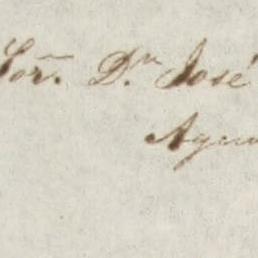 Sor. Dn José
Agu